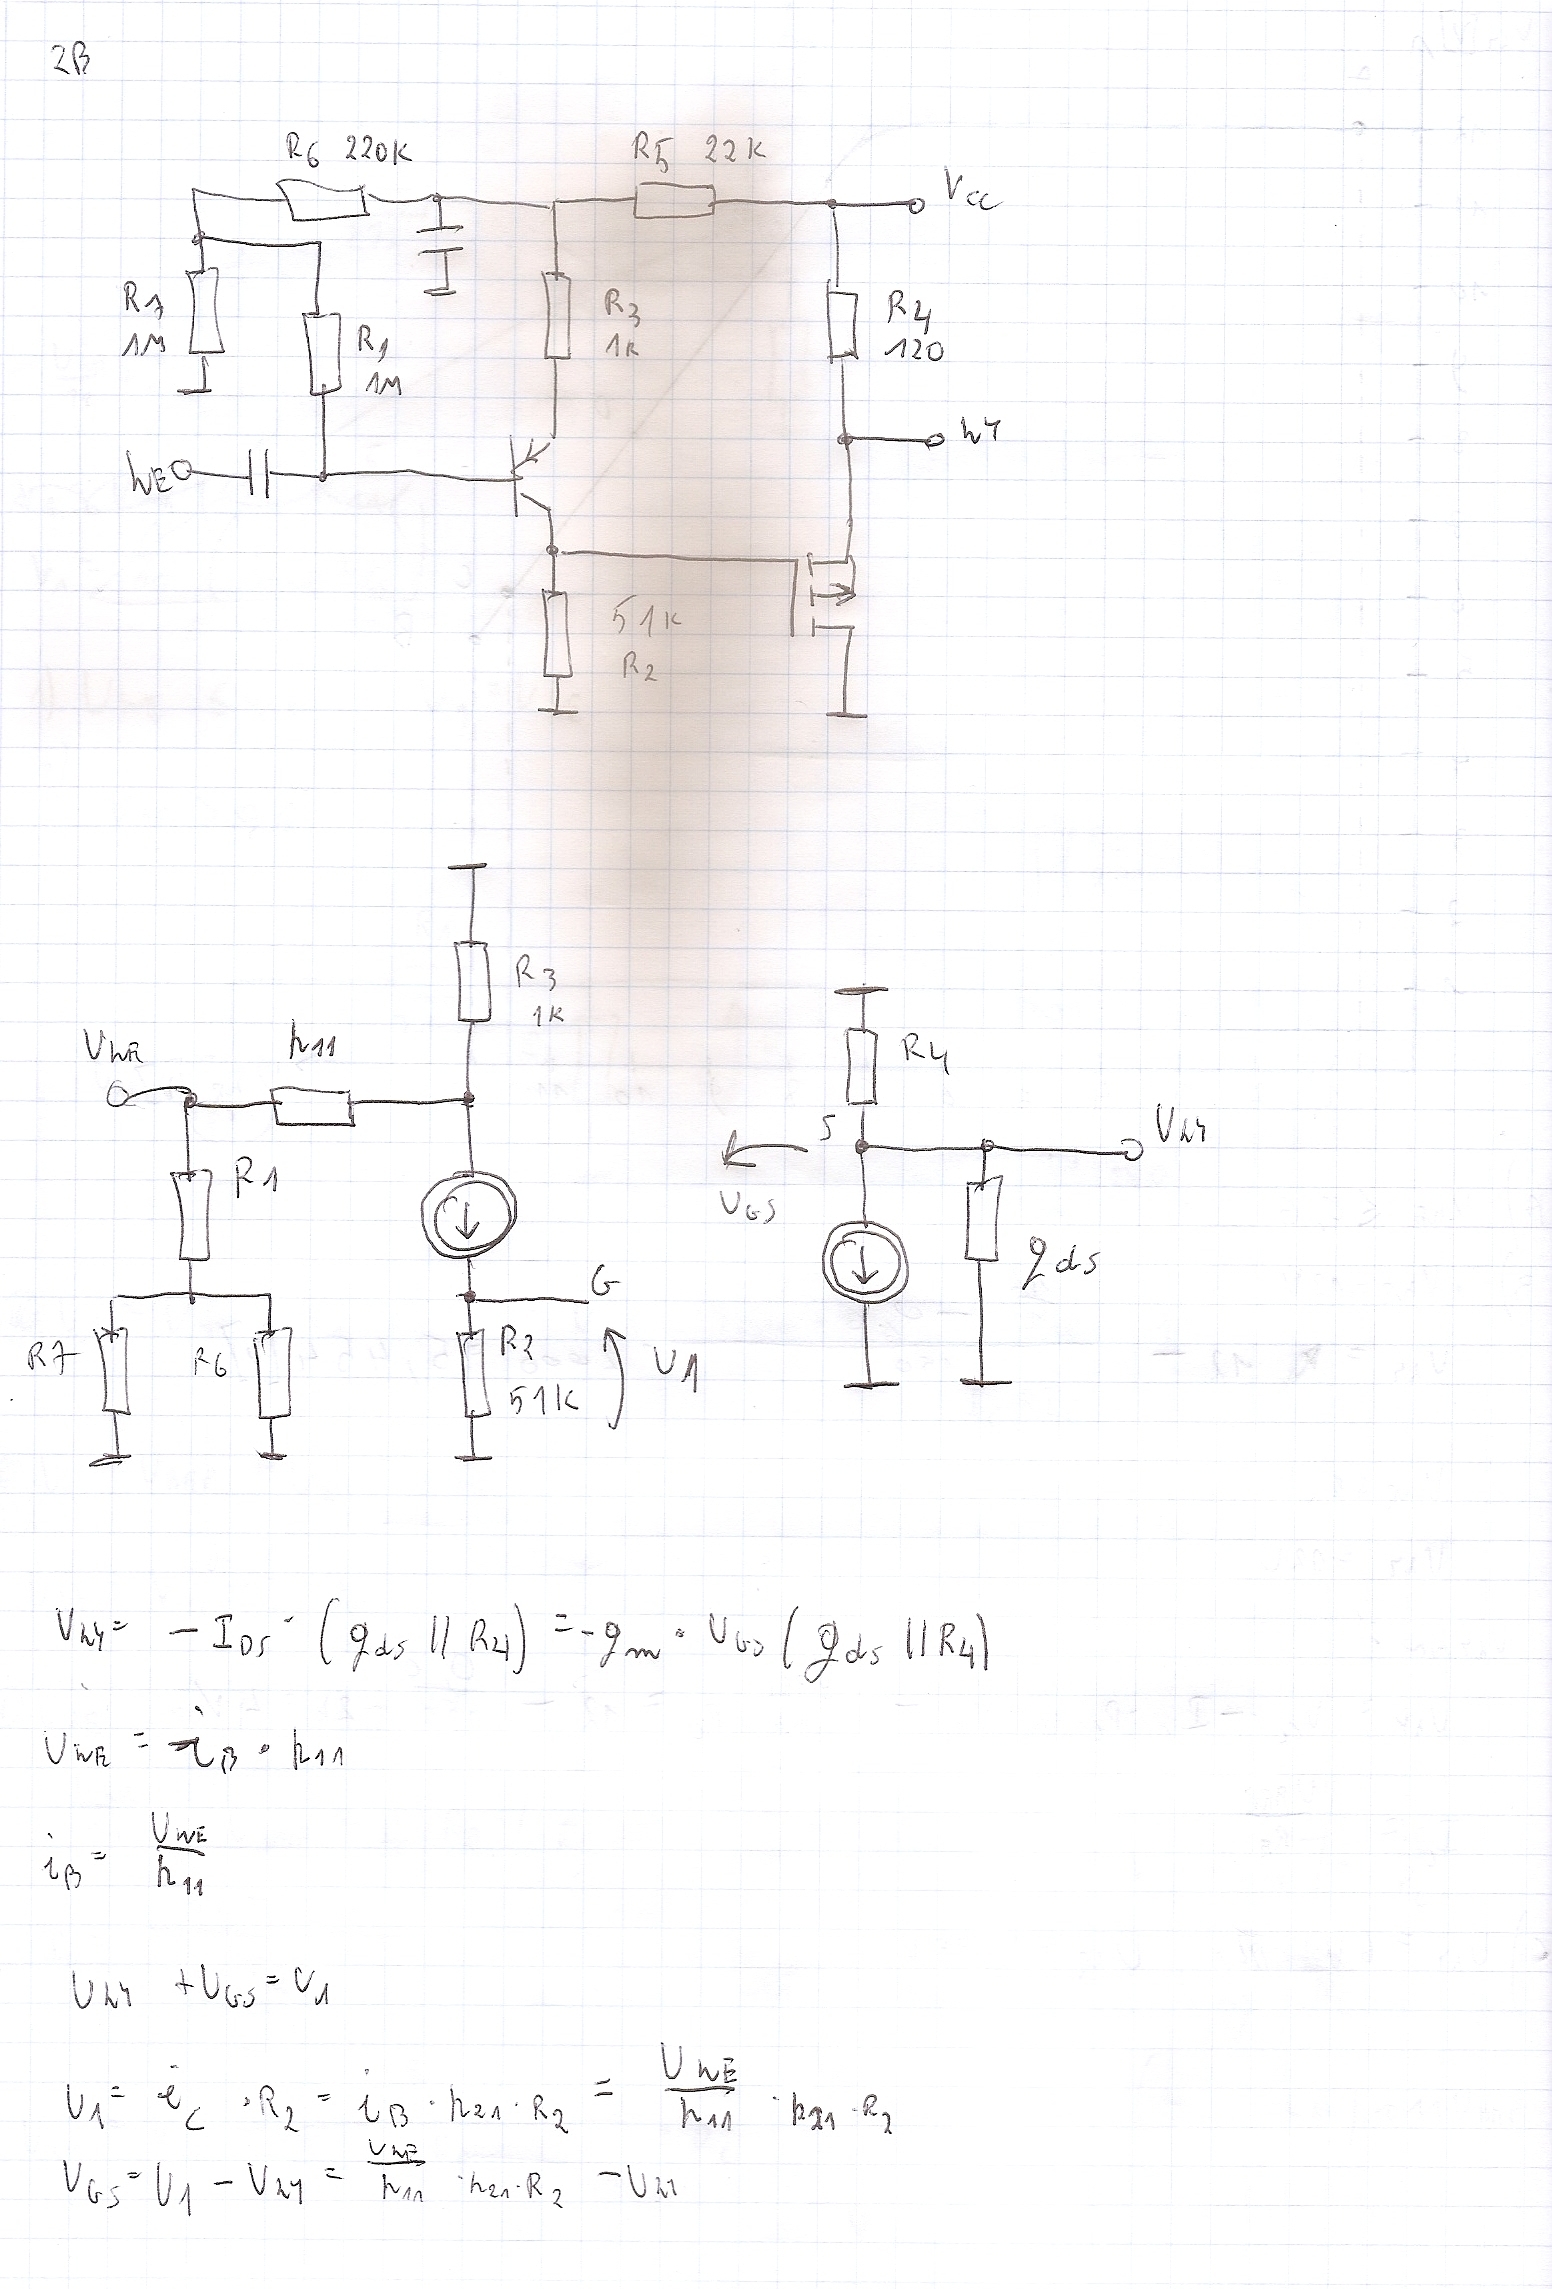 2B
R6 220K
R5 22K
Vcc
R7
1M
R1
1M
R3
1K
R4
120
WE
WY
51K
R2
R3
1K
UWE
h11
R1
R7
R6
G
R2
51K
U1
R4
S
UGS
UWY
gds
UWY = - IDS · (gds || R4) = -gm · UGS (gds || R4)
UWE = iB · h11
iB = UWE / h11
UWY + UGS = U1
U1 = iC · R2 = iB · h21 · R2 = UWE / h11 · h21 · R2
UGS = U1 - UWY = UWE / h11 · h21 · R2 - UWY